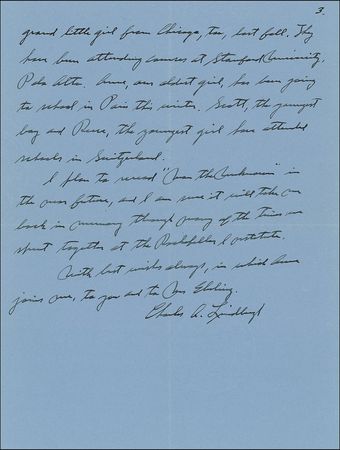 3.
grand little girl from Chicago, too, last fall. They
have been attending courses at Stanford University,
Palo Alto. Anne, our oldest girl, has been going
to school in Paris this winter. Scott, the youngest
boy and Reeve, the youngest girl have attended
schools in Switzerland.
I plan to reread "Man the Unknown" in
the near future, and I am sure it will take me
back in memory through many of the times we
spent together at the Rockefeller Institute.
With best wishes always, in which Anne
joins me, to you and to Mrs Ebeling.
Charles A. Lindbergh